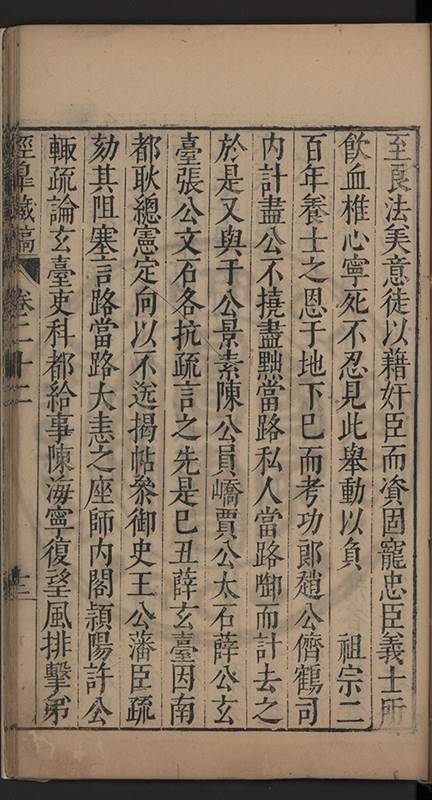 至良法美意徒以藉奸臣而資固寵忠臣義士所
飲血椎心寧死不忍見此舉動以負　祖宗二
百年養士之恩于地下巳而考功郎趙公儕鶴司
內計盡公不撓盡黜當路私人當路啣而計去之
於是又與于公景素陳公員嶠賈公太石薛公玄
臺張公文石各抗疏言之先是巳丑薛玄臺因南
都耿總憲定向以不送揭帖叅御史王公藩臣疏
劾其阻塞言路當路大恚之座師內閣頴陽許公
輙疏論玄臺吏科都給事陳海寧復望風排擊弟
經皐藏稿　卷二十二　十三